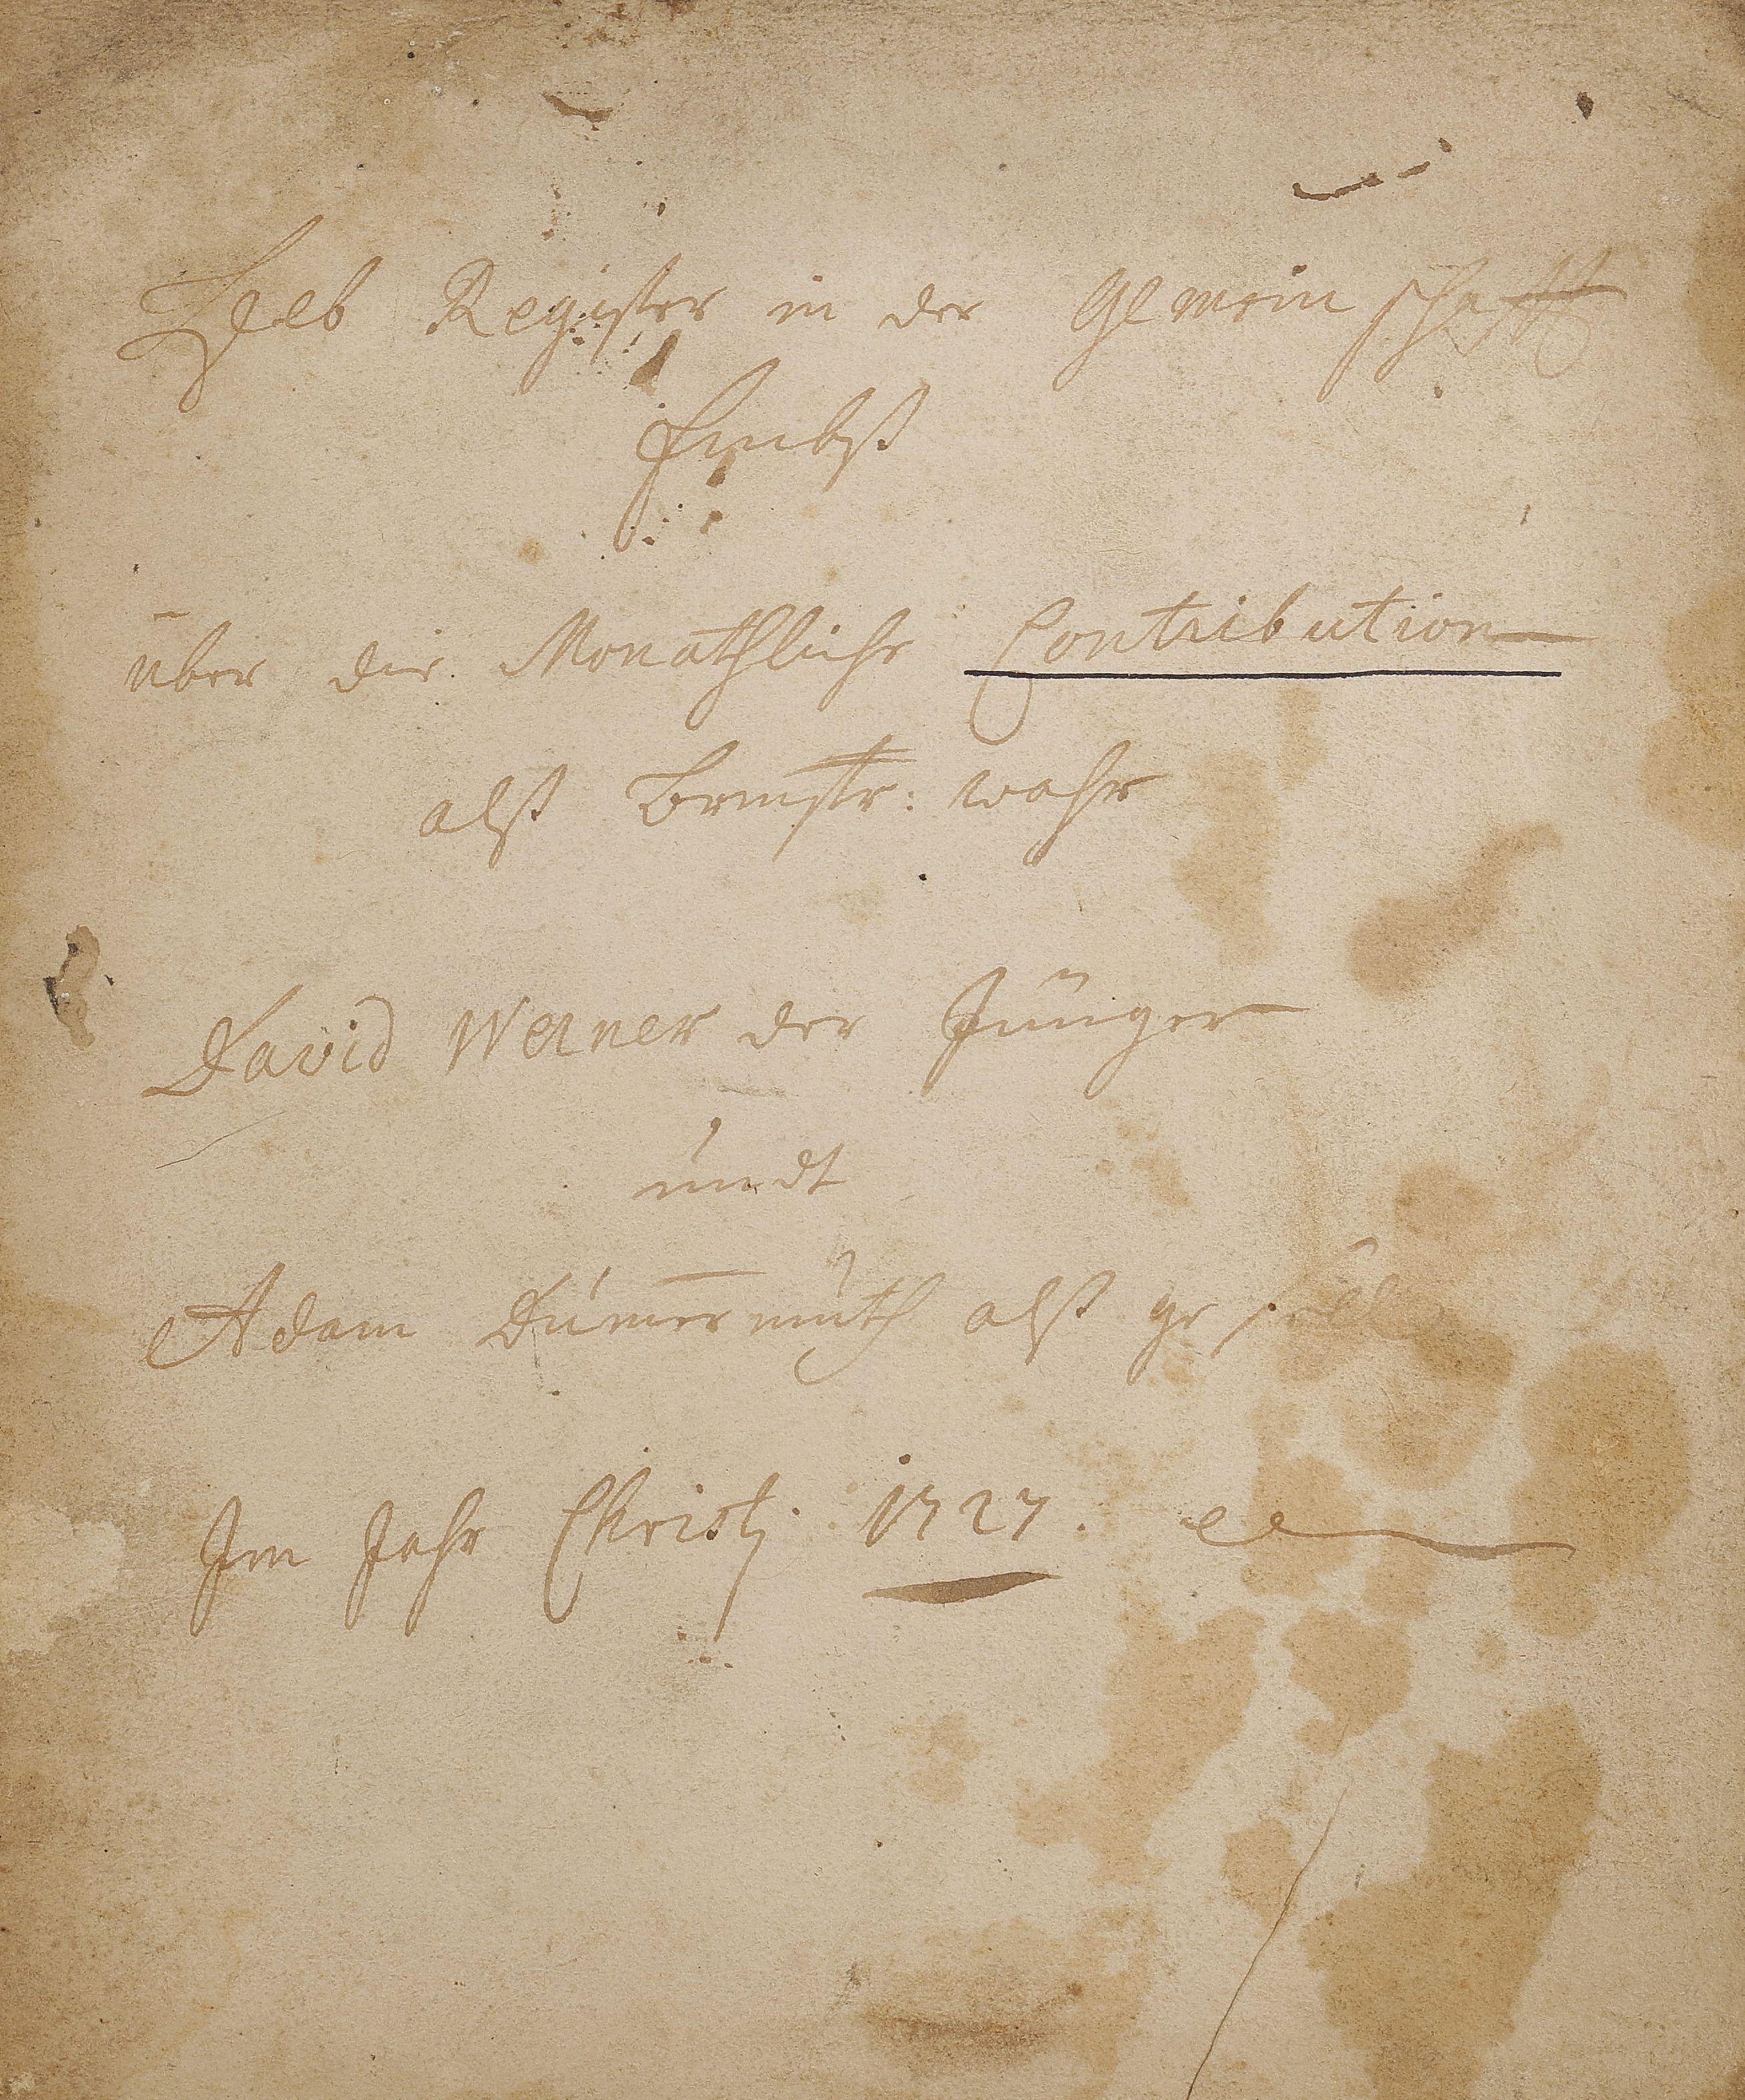 Heb Register in der Gemeinschafft
Embß
über die Monathliche Contribution
alß Bmstr: wahr
David Werner der Jünger
undt
Adam Dum̅ermuth alß geselle
Im Jahr Christi 1727.